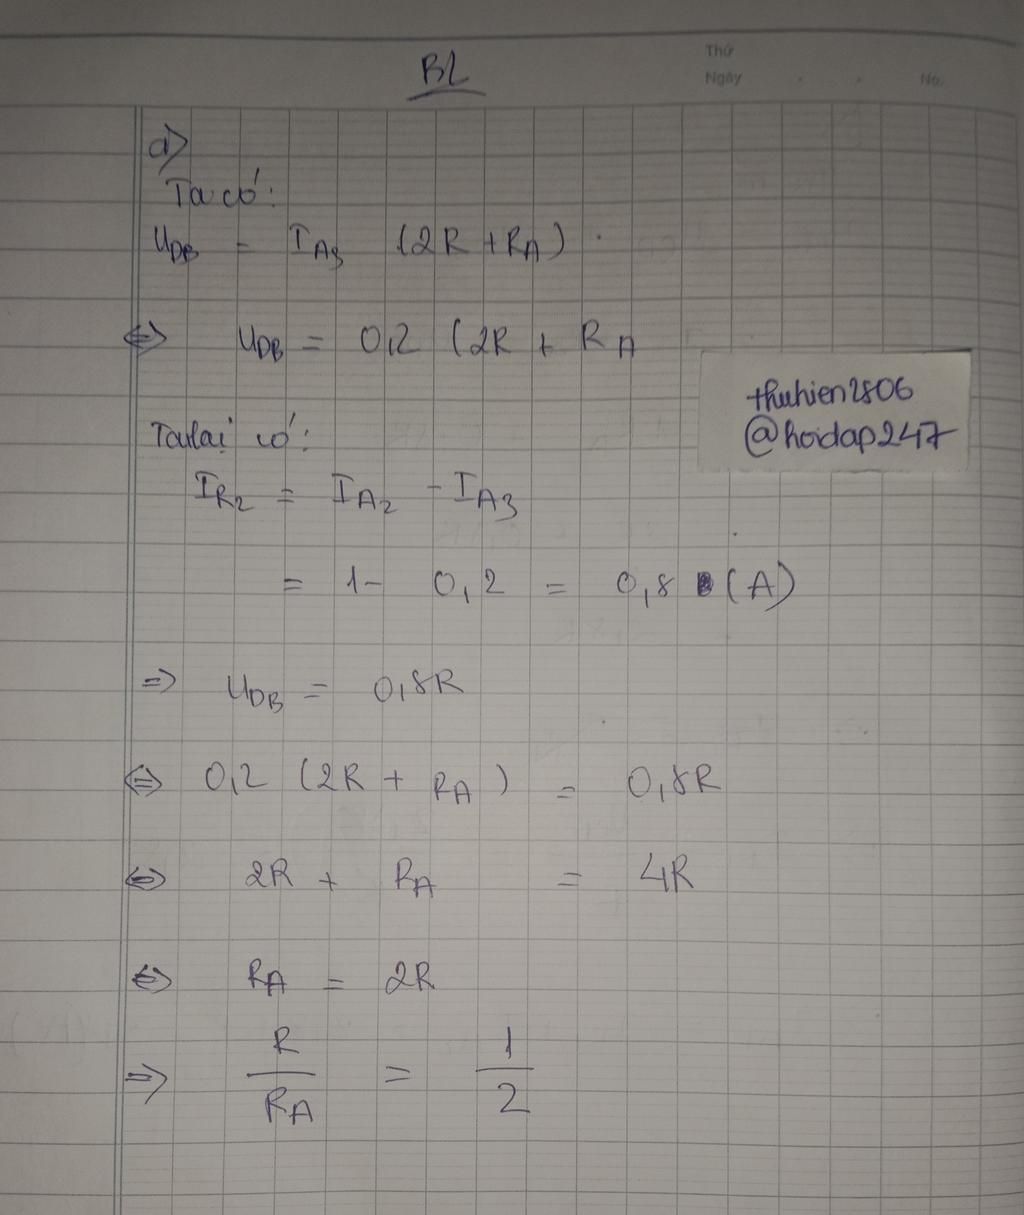 BL
Thứ
Ngày . . No.
a)
Ta có:
U_DB = I_A3 (2R + R_A).
⇔ U_DB = 0,2 (2R + R_A
thuhien2806
@hoidap247
Ta lại có:
I_R2 = I_A2 - I_A3
= 1 - 0,2 = 0,8 (A)
⇒ U_DB = 0,8R
⇔ 0,2 (2R + R_A) = 0,8R
⇔ 2R + R_A = 4R
⇔ R_A = 2R
⇒ R/R_A = 1/2